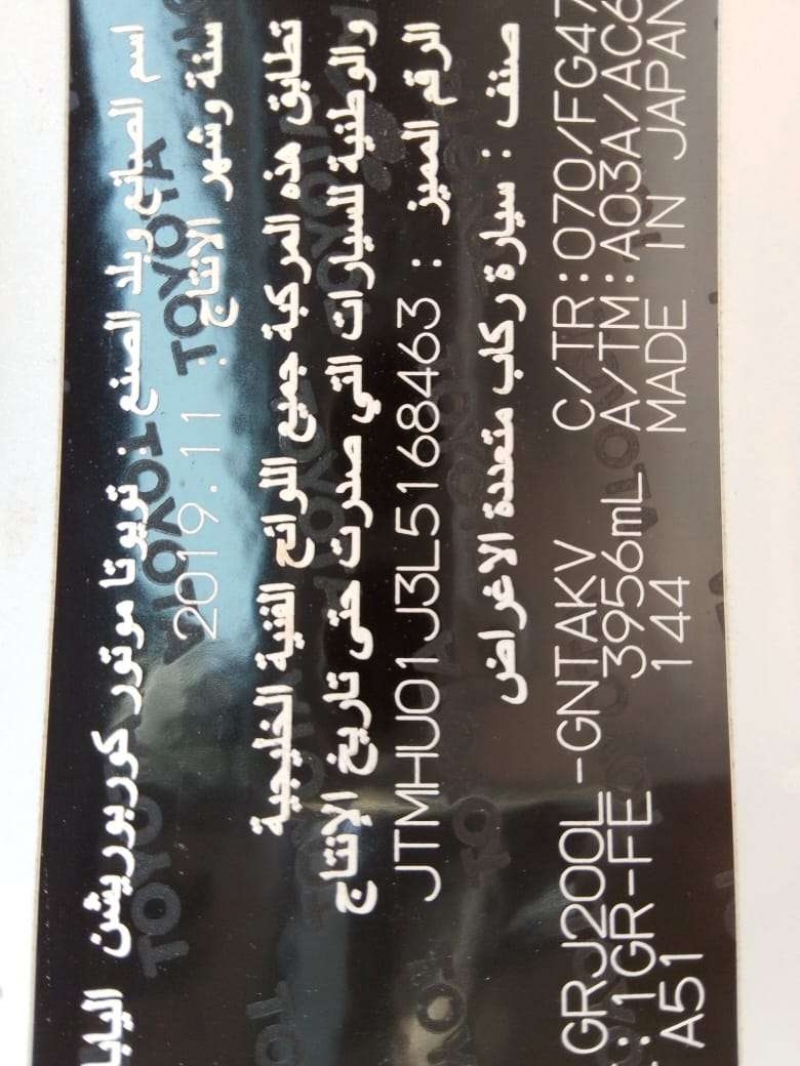 اسم الصانع وبلد الصنع : تويوتا موتور كوربوريشن اليابا
سنة وشهر الانتاج : 2019.11
تطابق هذه المركبة جميع اللوائح الفنية الخليجية
والوطنية للسيارات التي صدرت حتى تاريخ الإنتاج
الرقم المميز : JTMHU01J3L5168463
صنف : سيارة ركاب متعددة الاغراض
GRJ200L-GNTAKV C/TR:070/FG47
: 1GR-FE 3956mL A/TM:A03A/AC6
A51 144 MADE IN JAPAN
TOYOTA